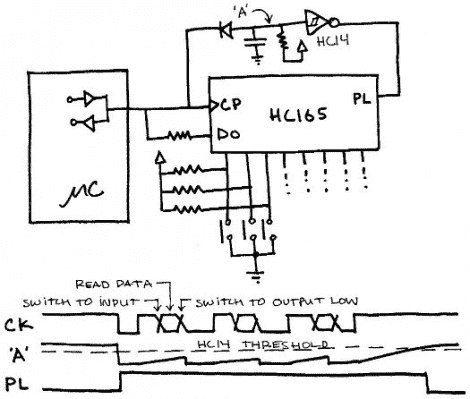 'A'
HC14
CP
PL
HC165
DO
μC
READ DATA
SWITCH TO INPUT
SWITCH TO OUTPUT LOW
CK
HC14 THRESHOLD
'A'
PL